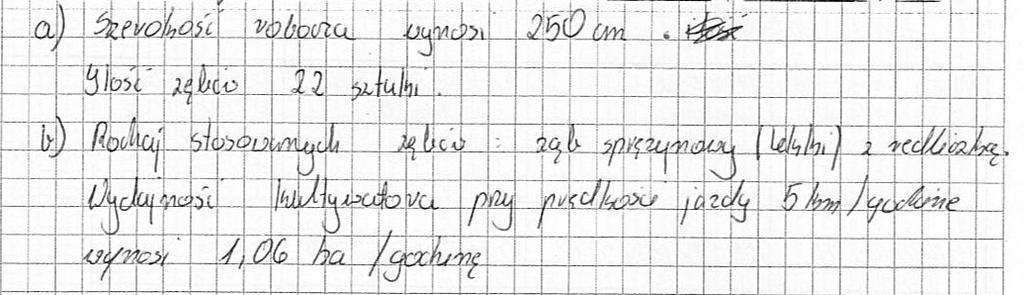 a) Szerokość robocza wynosi 250 cm.
Ilość zębów 22 sztuki.
b) Rodzaj stosowanych zębów : ząb sprężynowy (lekki) z redliczką.
Wydajność kultywatora przy prędkości jazdy 5 km/godzinę
wynosi 1,06 ha /godzinę